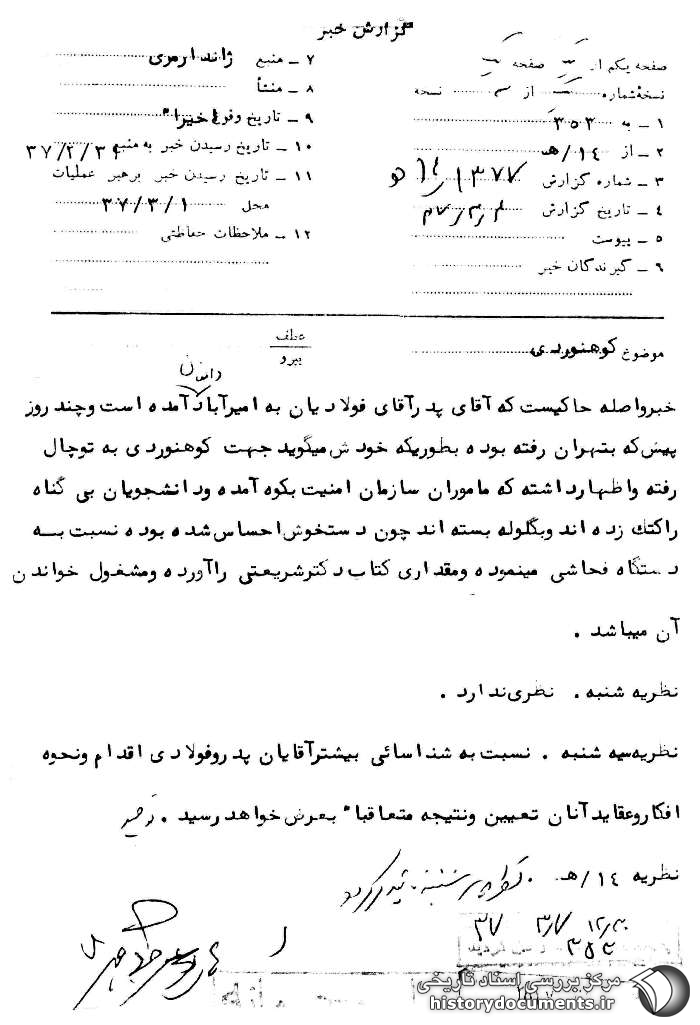 گزارش خبر
صفحه یکم از یک صفحه
نسخهٔ شماره از نسخه
۱ - به ۳۵۲
۲ - از ۱۴/هـ
۳ - شماره گزارش
۴ - تاریخ گزارش
۵ - پیوست
۶ - گیرندگان خبر
۷ - منبع ژاندارمری
۸ - منشأ
۹ - تاریخ وقوع اخیرا"
۱۰ - تاریخ رسیدن خبر به منبع ۳۷/۲/۳۱
۱۱ - تاریخ رسیدن خبر برهبر عملیات
محل ۳۷/۳/۱
۱۲ - ملاحظات حفاظتی
موضوع کوهنوردی
عطف
پیرو
خبرواصله حاکیست که آقای پدرآقای فولادیان به امیرآباد آمده است وچند روز
پیش که بتهران رفته بوده بطوریکه خودش میگوید جهت کوهنوردی به توچال
رفته واظهارداشته که ماموران سازمان امنیت بکوه آمده ودانشجویان بی گناه
راکتک زده اند وبگلوله بسته اند چون دستخوش احساس شده بوده نسبت بـه
دستگاه فحاشی مینموده ومقداری کتاب دکترشریعتی راآورده ومشغول خواندن
آن میباشد .
نظریه شنبه . نظری ندارد .
نظریه سه شنبه . نسبت به شناسائی بیشترآقایان پدروفولادی اقدام ونحوه
افکاروعقایدآنان تعیین ونتیجه متعاقبا" بعرض خواهد رسید .
نظریه ۱۴/هـ .
مرکز بررسی اسناد تاریخی
historydocuments.ir